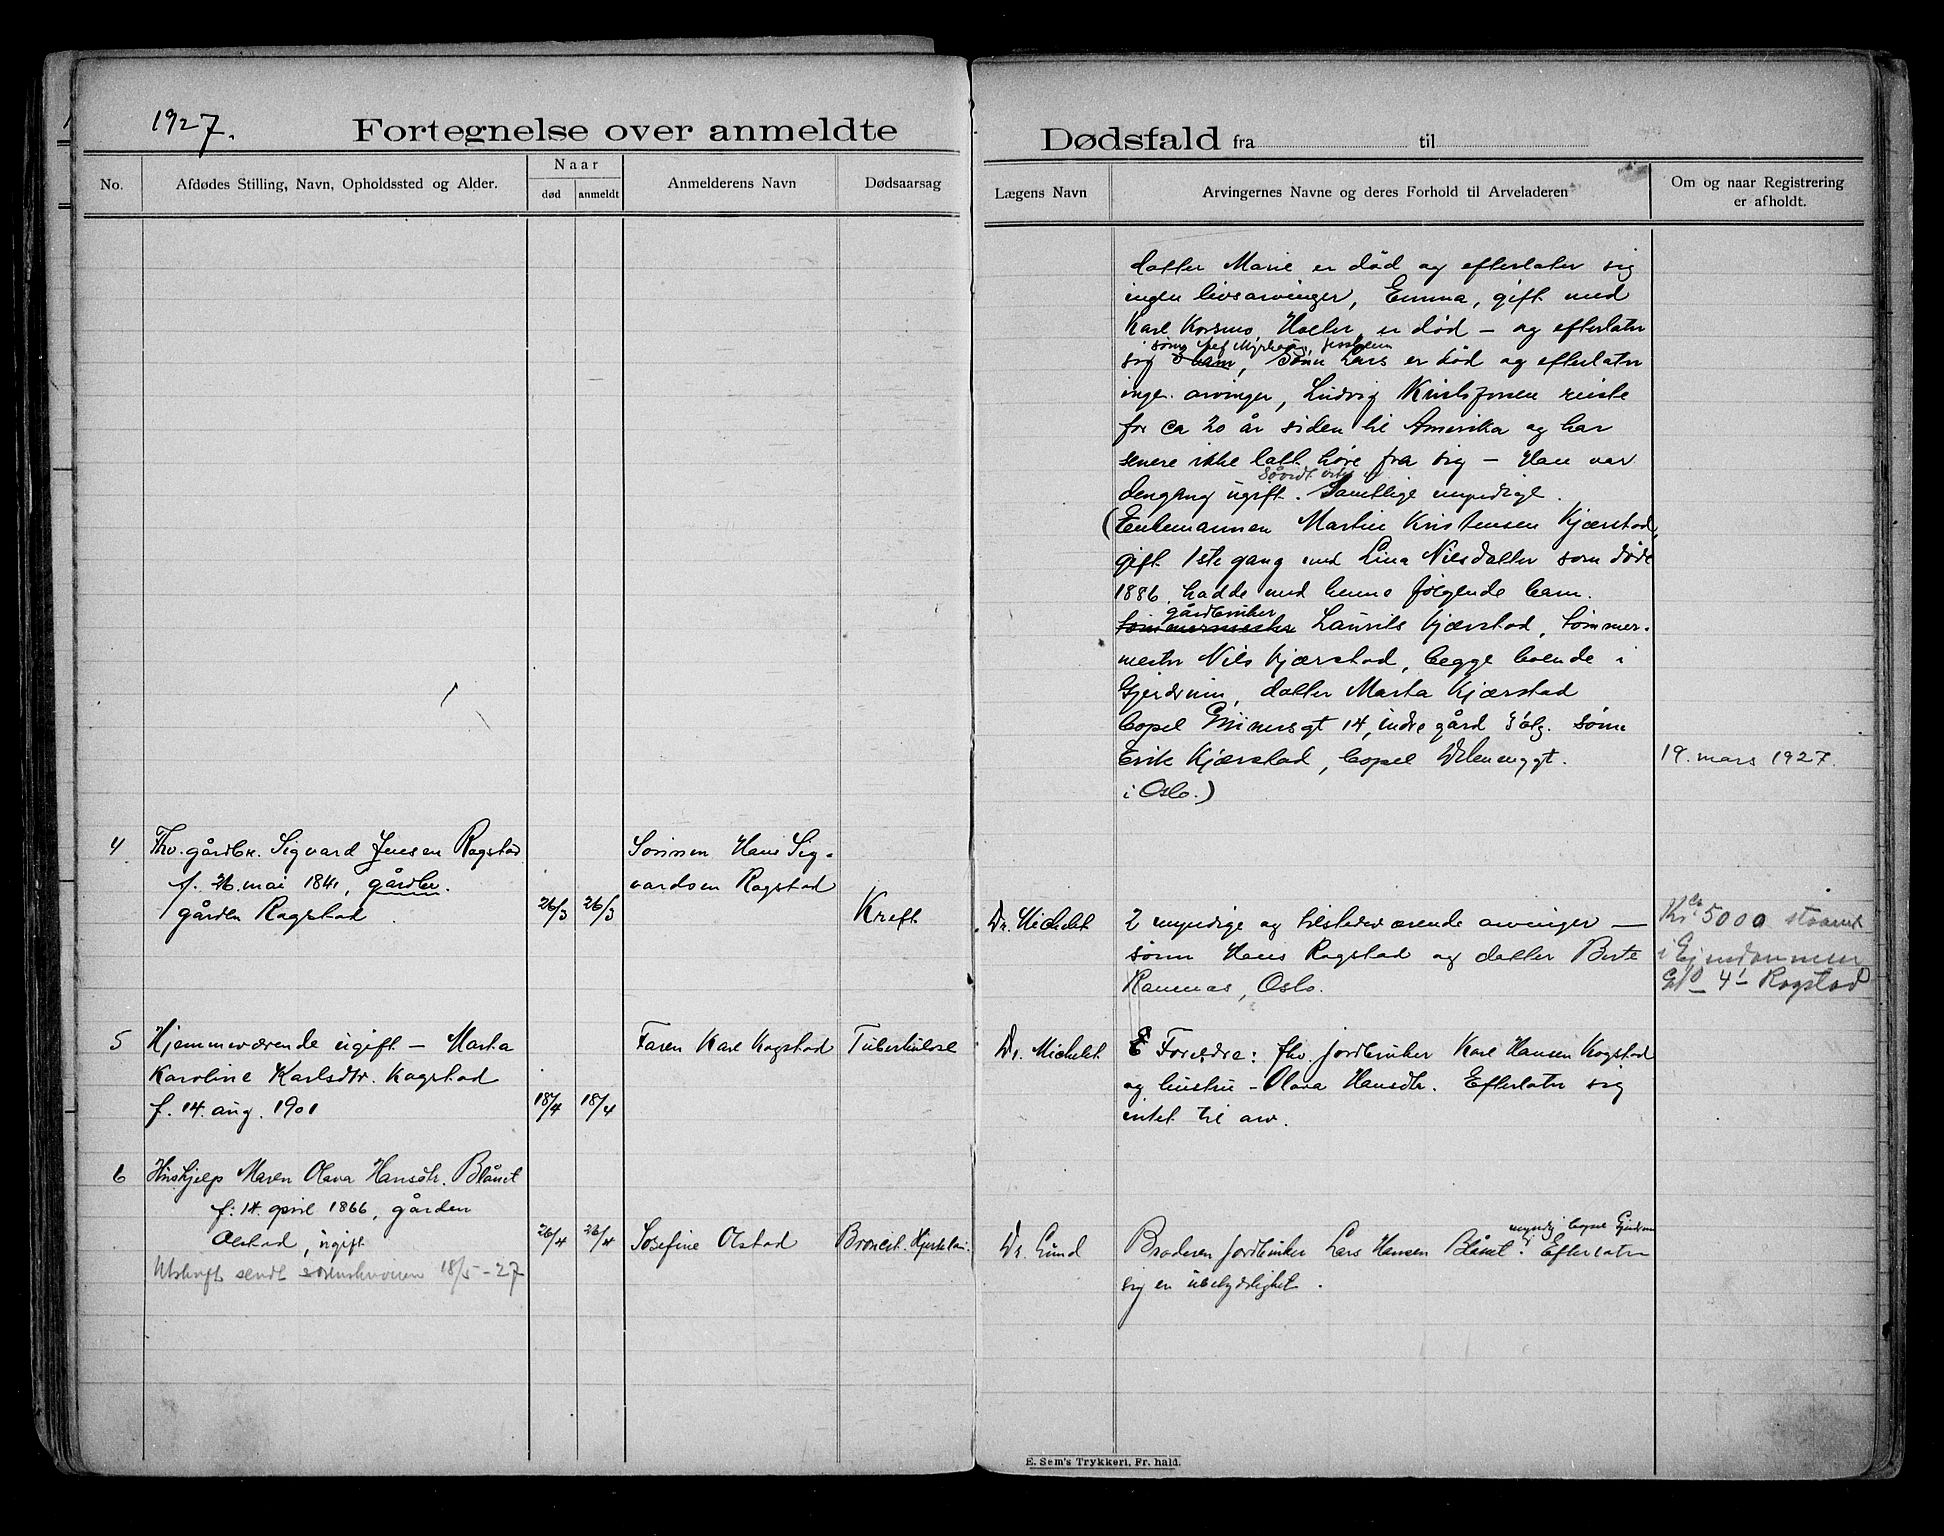 1927.
Fortegnelse over anmeldte
No.
Afdødes Stilling, Navn, Opholdssted og Alder.
Naar
død
anmeldt
Anmelderens Navn
Dødsaarsag
4
Fhv. gårdbr. Sigvard Jensen Ragstad
f. 26. mai 1841, gårdbr.
gården Ragstad
26/3
26/3
Sønnen Hans Sig-
vardsen Ragstad
Kreft
5
Hjemmeværende ugift - Marta
Karoline Karlsdtr. Kogstad
f. 14. aug. 1901
18/4
18/4
Faren Karl Kogstad
Tuberkulose
6
Hushjelp Maren Olava Hansdtr. Blånet
f. 14. april 1866, gården
Olstad, ugift
26/4
26/4
Josefine Olstad
Broncit.
Utskrift sendt sorenskriveren 18/5-27
Dødsfald fra til
Lægens Navn
Arvingernes Navne og deres Forhold til Arveladeren
Om og naar Registrering
er afholdt.
datter Marie er død og efterlater sig
ingen livsarvinger, Emma, gift med
Karl Korsmo, Holter, er død - og efterlater
sig barn, sønn Lars er død og efterlater
ingen arvinger, Ludvig Kristiansen reiste
for ca 20 år siden til Amerika og har
senere ikke latt høre fra sig - Han var
såvidt vites
dengang ugift. Samtlige myndige.
(Enkemannen Martin Kristensen Kjærstad,
gift 1ste gang med Lina Nilsdatter som døde
1886, hadde med henne følgende barn.
gårdbruker
tømmermester Laurits Kjærstad, tømmer-
mester Nils Kjærstad, begge boende i
Gjerdrum, datter Marta Kjærstad
bopel 14, indre gård 3 etg. sønn
Erik Kjærstad, bopel
i Oslo.)
19. mars 1927.
Dr. Michelet
2 myndige og tilstedeværende arvinger -
sønn Hans Ragstad og datter Berte
Ramnes, Oslo.
Kr. ca 5000
i Ejendommen
4 Ragstad
Dr. Michelet
Foreldre: fhv. jordbruker Karl Hansen Kogstad
og hustru - Olava Hansdtr. Efterlater sig
intet til arv.
Dr. Lund
myndig bopel Gjerdrum
Broderen jordbruker Lars Hansen Blånet. Efterlater
sig en ubetydelighet.
E. Sem's Trykkeri, Fr. hald.